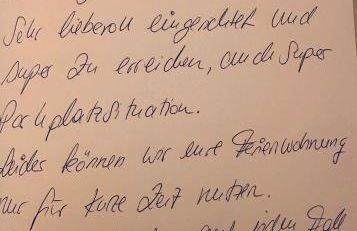 Sehr liebevoll eingerichtet und
super zu erreichen, auch super
Parkplatzsituation.
Leider können wir eure Ferienwohnung
nur für kurze Zeit nutzen.
auf jeden Fall